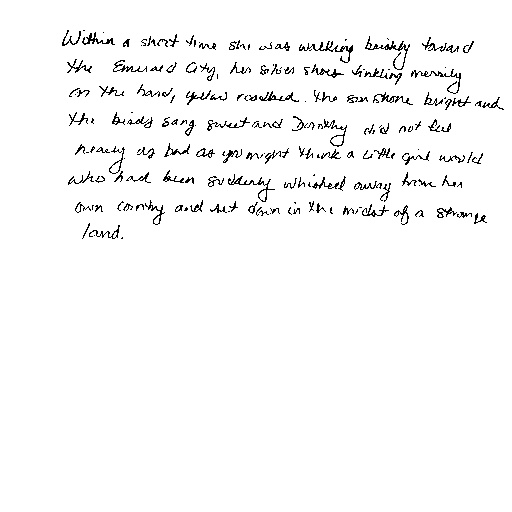 Within a short time she was walking briskly toward
the Emerald City, her silver shoes tinkling merrily
on the hard, yellow roadbed. The sun shone bright and
the birds sang sweet and Dorothy did not feel
nearly as bad as you might think a little girl would
who had been suddenly whisked away from her
own country and set down in the midst of a strange
land.